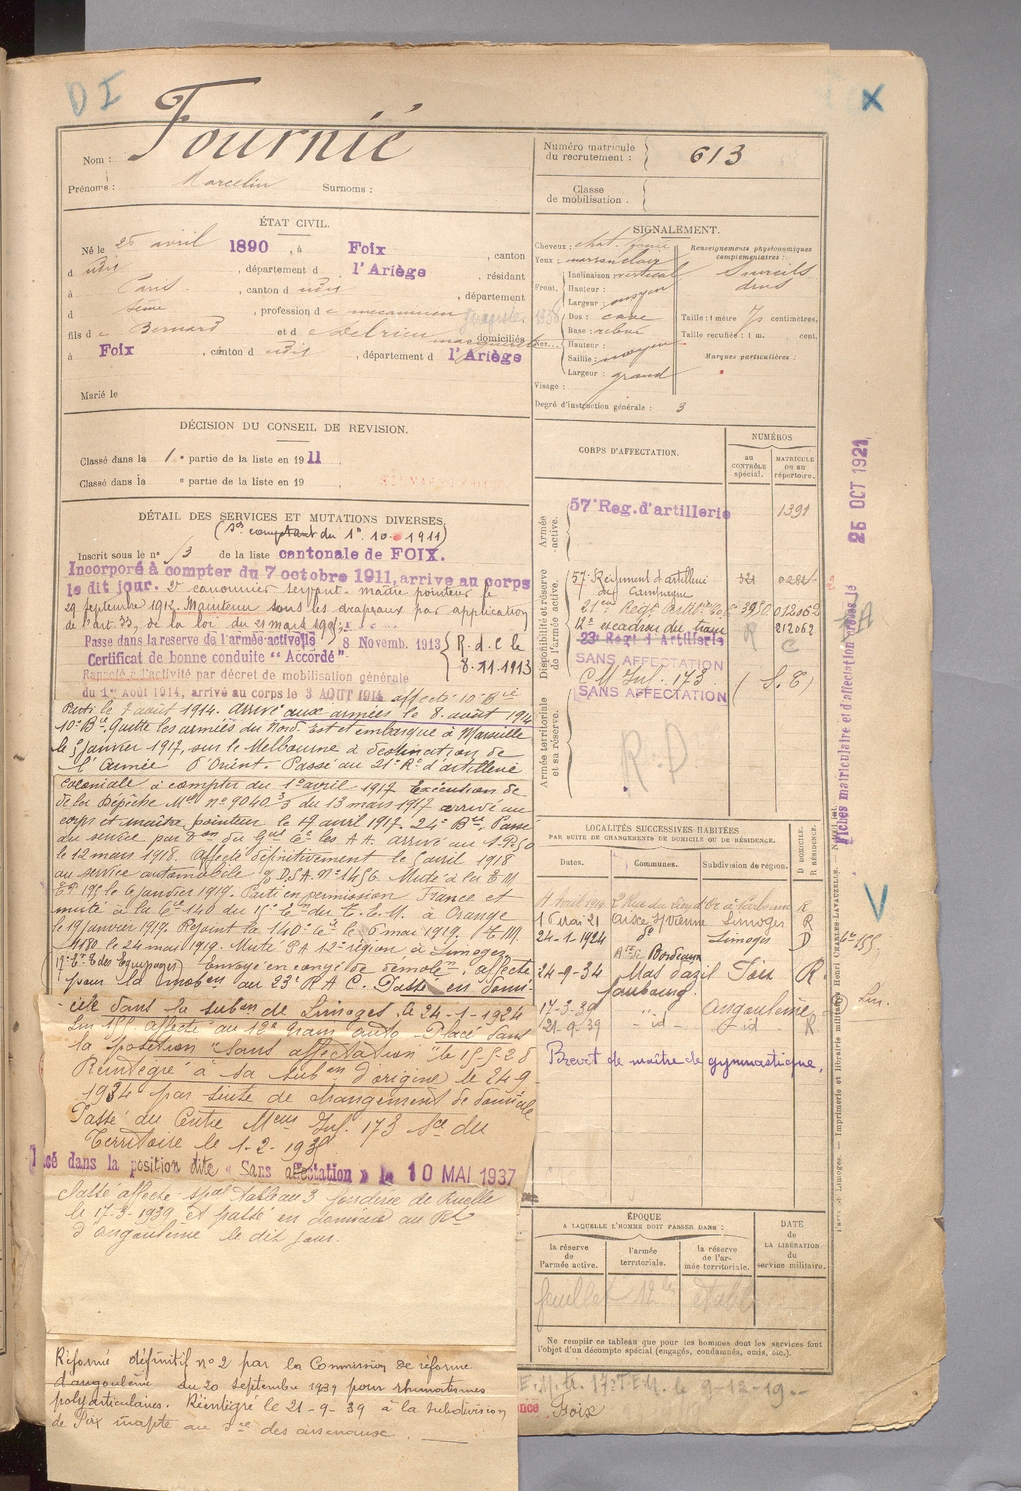 D I
X
Nom : Fournié
Prénoms : Marcelin Surnoms :
Numéro matricule
du recrutement : 613
Classe
de mobilisation .
ÉTAT CIVIL.
Né le 25 avril 1890 , à Foix , canton
d udit , département d l'Ariège , résidant
à Paris , canton d udit , département
d Seine , profession d e mecanicien
fils d e Bernard et d e domiciliés
à Foix , canton d udit , département d l'Ariège
Marié le
SIGNALEMENT.
Cheveux : chat. foncé
Yeux : marron clair
Front. Inclinaison vertical
Hauteur :
Largeur : moyen
Dos : cave
Base : relevé
Hauteur :
Saillie : moyen
Largeur : grand
Visage :
Degré d'instruction générale : 3
Renseignements physionomiques
complémentaires :
Sourcils
drus
Taille : 1 mètre 75 centimètres.
Taille rectifiée : 1 m. cent.
Marques particulières :
DÉCISION DU CONSEIL DE REVISION.
Classé dans la 1e partie de la liste en 1911 .
Classé dans la e partie de la liste en 19 .
DÉTAIL DES SERVICES ET MUTATIONS DIVERSES.
(Ses comptant du 1er 10 1911)
Inscrit sous le n° 13 de la liste cantonale de FOIX.
Incorporé à compter du 7 octobre 1911, arrive au corps
le dit jour. 2e canonnier servant. maître pointeur le
29 septembre 1912. Maintenu sous les drapeaux par application
de l'art. 33, de la loi du 21 mars 1905
Passe dans la reserve de l'armée active le 8 Novemb. 1913
Certificat de bonne conduite “ Accordé ”
R. d. C le
8.11.1913
Rappelé à l'activité par décret de mobilisation générale
du 1er Août 1914, arrivé au corps le 3 AOUT 1914 affecté 10e Bie
Parti le 7 août 1914. arrivé aux armées le 8 août 1914
10e Bie. Quitte les armées du Nord. Est et embarque à Marseille
le 5 janvier 1917, sur le Melbourne à destination de
l'Armée d'Orient. Passé au 21e Rt d'artillerie
coloniale à compter du 1er avril 1917 Exécution de
de la Dépêche Mlle n° 9040 3/3 du 13 mars 1917 arrivé au
corps et maître pointeur le 17 avril 1917. 24e Bie. Passe
au service par
le 12 mars 1918. Affecté définitivement le 5 avril 1918
au service automobile D.S.A. N° 1456 Muté à la T M
le 6 janvier 1919. Parti en permission France et
muté à la Cie 140 du 15e à Orange
le 19 janvier 1919. Rejoint la 140e Cie le 6 mai 1919. T.M.
1180 le 24 mai 1919. Muté P A 12e région, à Limoges
Envoyé en congé de démobon, affecté
pour la mobon au 23e R A C. Passé en domi-
-cile dans la subon de Limoges, le 24-1-1924
affecté au 12e train auto Placé dans
la position “sans affectation” le 15-5-28
Réintégré à sa subon d'origine le 24-9-
1934 par suite de changement de domicile
Passé au Centre Meur Inf. 173 Sce du
Territoire le 1-2-1936
cé dans la position dite « Sans affectation » le 10 MAI 1937
Classé affecté spal tableau 3 fonderie de Ruelle
le 17-3-1939 et passé en domicile au Rt
d'angoulême le dit jour.
Réformé définitif n° 2 par la Commission de réforme
d'angoulême du 20 septembre 1939 pour rhumatismes
polyarticulaires. Réintégré le 21-9-39 à la subdivision
de Foix inapte au sce des arsenaux.
CORPS D'AFFECTATION.
NUMÉROS
au
CONTRÔLE
spécial.
MATRICULE
ou au
répertoire.
Armée
active.
57e Reg. d'artillerie 1391
Disponibilité et réserve
de l'armée active.
57e Régiment d'artillerie 321
de Campagne
21eme Regt Artie Cole 3950 012062
12e escadron du train R 212062
23e Regt d'Artillerie C
SANS AFFECTATION
C M Inf. 173 (S. T)
SANS AFFECTATION
Armée territoriale
et sa réserve.
R.D
LOCALITÉS SUCCESSIVES HABITÉES
PAR SUITE DE CHANGEMENTS DE DOMICILE OU DE RÉSIDENCE.
D. DOMICILE.
R. RÉSIDENCE.
Dates. Communes. Subdivision de région.
11 Avril 1914 2 Rue du Lieud'Or à Narbonne R
16 Mai 21 Aixe s/Vienne Limoges R
24-1-1924 do Limoges D
Bordeaux
24-9-34 Mas d'azil Foix R
faubourg
17-3-39 " angoulême
21-9-39 - id - id R
Brevet de maître de gymnastique.
ÉPOQUE
A LAQUELLE L'HOMME DOIT PASSER DANS :
la réserve
de
l'armée active.
l'armée
territoriale.
la réserve
de l'ar-
mée territoriale.
DATE
de
LA LIBÉRATION
du
service militaire.
feuillet
Ne remplir ce tableau que pour les hommes dont les services font
l'objet d'un décompte spécial (engagés, condamnés, omis, etc.).
le 9-12-19.
Foix
Fiches matriculaire et d'affectation créées le 25 OCT 1921
Limoges. — Imprimerie et librairie militaires Henri CHARLES-LAVAUZELLE.
V